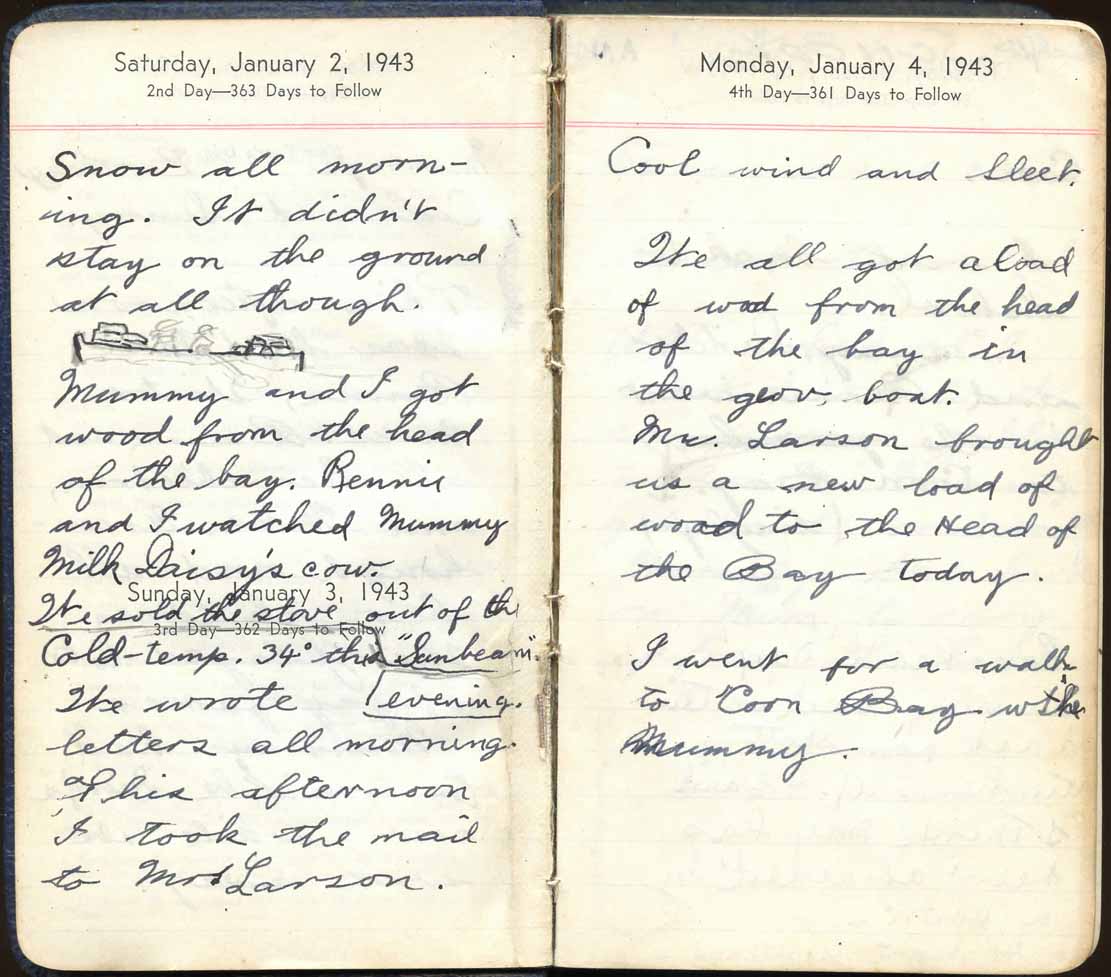 Saturday, January 2, 1943
2nd Day—363 Days to Follow
Snow all morn-
ing. It didn't
stay on the ground
at all though.
Mummy and I got
wood from the head
of the bay. Rennie
and I watched Mummy
Milk Daisy's cow.
Sunday, January 3, 1943
We sold the stove out of the
3rd Day—362 Days to Follow
Cold-temp. 34° this "Sunbeam".
We wrote evening.
letters all morning.
This afternoon
I took the mail
to Mrs Larson.
Monday, January 4, 1943
4th Day—361 Days to Follow
Cool wind and sleet.
We all got a load
of wood from the head
of the bay in
the gov. boat.
Mr. Larson brought
us a new load of
wood to the Head of
the Bay today.
I went for a walk
to Coon Bay with
Mummy.